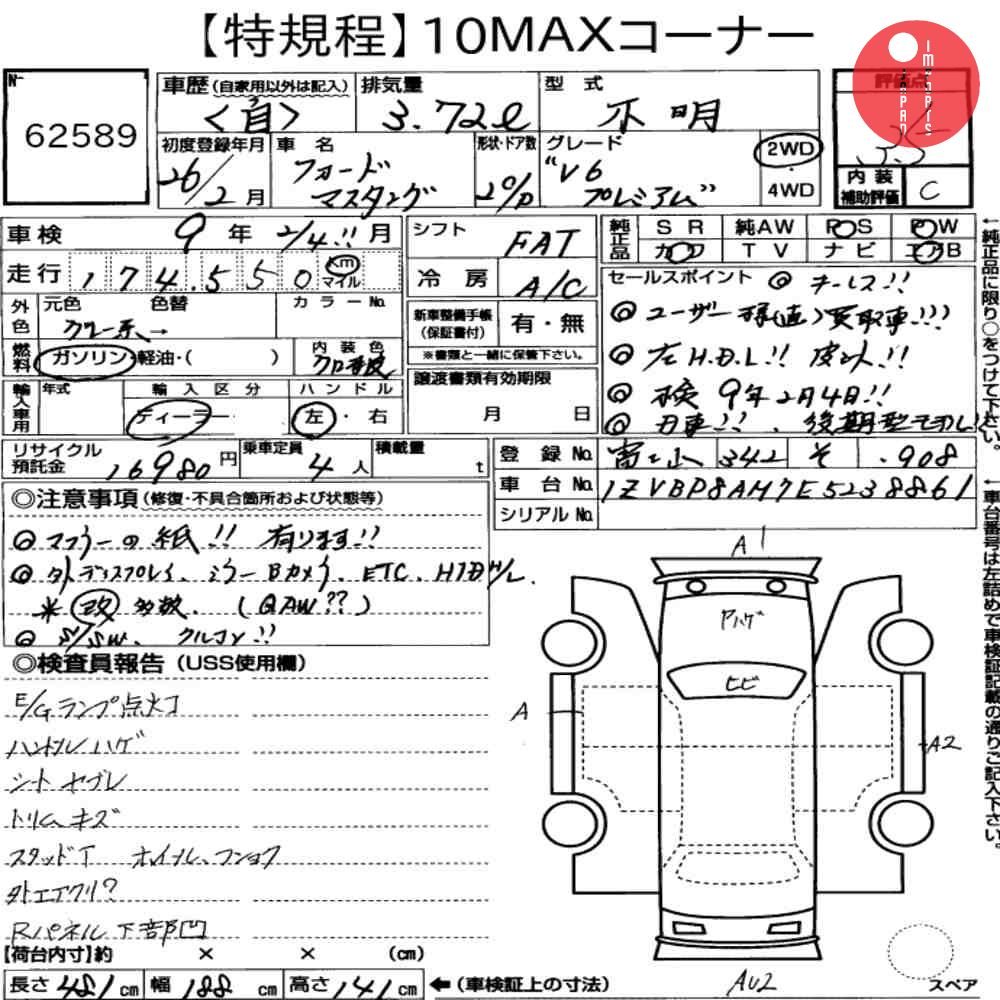 【特規程】10MAXコーナー
JAPAN IMPORTS
No.
62589
車歴(自家用以外は記入)
<自>
排気量
3.72ℓ
型式
不明
評価点
3.5
初度登録年月
26/2月
車名
フォード
マスタング
形状・ドア数
2D/P
グレード
"V6
プレミアム"
2WD
4WD
内装
補助評価
C
車検 9年 2/4!!月
走行 174,550 km
マイル
シフト FAT
冷房 A/C
純正品
SR 純AW PS PW
カワ TV ナビ エアB
外色
元色 色替 カラーNo.
グレー系→
新車整備手帳
(保証書付)
有・無
※書類と一緒に保管下さい。
セールスポイント ◎キーレス!!
◎ユーザー様(直)買取車!!!
◎左H.D.L!! 皮シート!!
◎検 9年2月4日!!
燃料
ガソリン・軽油・( )
内装色
輸入車用
年式
輸入区分
ディーラー
ハンドル
左・右
譲渡書類有効期限
月 日
リサイクル
預託金
16980円
乗車定員
4人
積載量
t
登録No. 富山 342 そ .908
車台No. 1ZVBP8AM7E5238861
シリアルNo.
◎注意事項(修復・不具合箇所および状態等)
◎マフラーの紙!! 有ります!!
◎外ディスプレイ、ミラーBカメラ、ETC、HID H/L.
※改多数、(QAW??)
◎S/SW、クルコン!!
◎検査員報告(USS使用欄)
E/Gランプ点灯
ハンドルハゲ
シートヤブレ
トリムキズ
スタッドT ホイール、フンショク
外エアクリ?
Rパネル下部凹
A1
Pハゲ
ヒビ
A
A2
AU2
スペア
【荷台内寸】約 × × (cm)
長さ481cm 幅188cm 高さ141cm ←(車検証上の寸法)
←純正品に限り○をつけて下さい。
←車台番号は左詰めで車検証記載の通りご記入下さい。